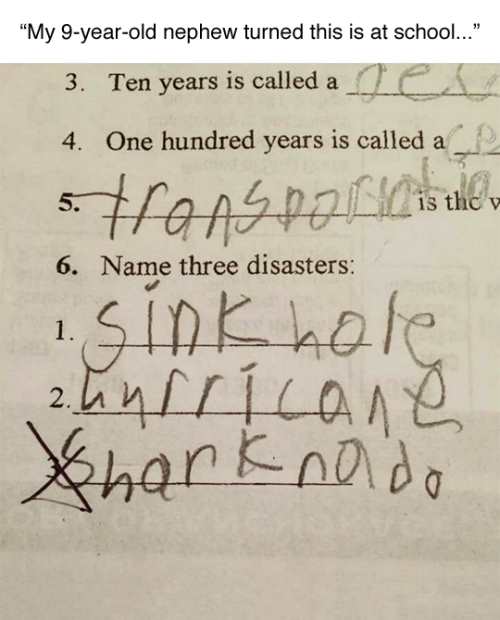 “My 9-year-old nephew turned this is at school...”
3. Ten years is called a
4. One hundred years is called a
5. transportatio is the
6. Name three disasters:
1. sinkhole
2. hurricane
sharknado